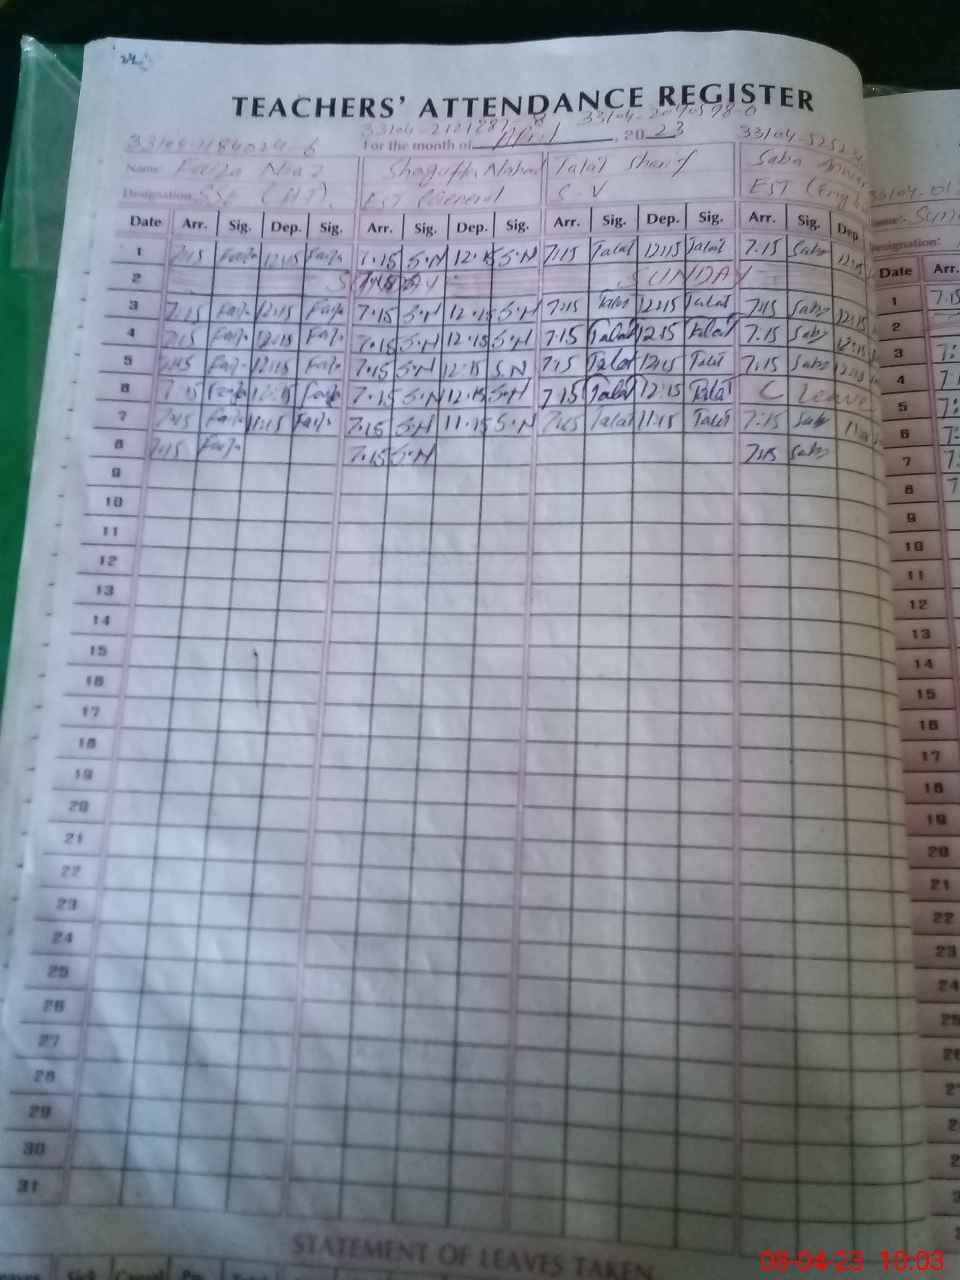 TEACHERS' ATTENDANCE REGISTER
For the month of April, 2023
Name: Faiza Niaz Talat Sharif Saba
Designation: SSE EST General C-V EST (Eng
Date Arr. Sig. Dep. Sig. Arr. Sig. Dep. Sig. Arr. Sig. Dep. Sig. Arr. Sig. Dep.
1 7:15 Faiza 12:15 Faiza 7.15 S.N 12.15 S.N 7:15 Talat 12:15 Talat 7:15 Saba
2 SUNDAY SUNDAY
3 7:15 Faiza 12:15 Faiza 7.15 S.N 12.15 S.N 7:15 Talat 12:15 Talat 7:15 Saba 12:15
4 7:15 Faiza 12:15 Faiza 7.15 S.N 12.15 S.N 7:15 Talat 12:15 Talat 7:15 Saba 12:15
5 7:15 Faiza 12:15 Faiza 7.15 S.N 12.15 S.N 7:15 Talat 12:15 Talat 7:15 Saba 12:15
6 7:15 Faiza 12:15 Faiza 7.15 S.N 12.15 S.N 7:15 Talat 12:15 Talat C Leave
7 7:15 Faiza 11:15 Faiza 7.15 S.N 11.15 S.N 7:15 Talat 11:15 Talat 7:15 Saba
8 7:15 Faiza 7.15 S.N 7:15 Saba
9
10
11
12
13
14
15
16
17
18
19
20
21
22
23
24
25
26
27
28
29
30
31
STATEMENT OF LEAVES TAKEN
Sick Casual
Designation:
Date Arr.
1 7:15
2
3
4
5
6
7
8
9
10
11
12
13
14
15
16
17
18
19
20
21
22
23
24
25
08-04-23 10:03